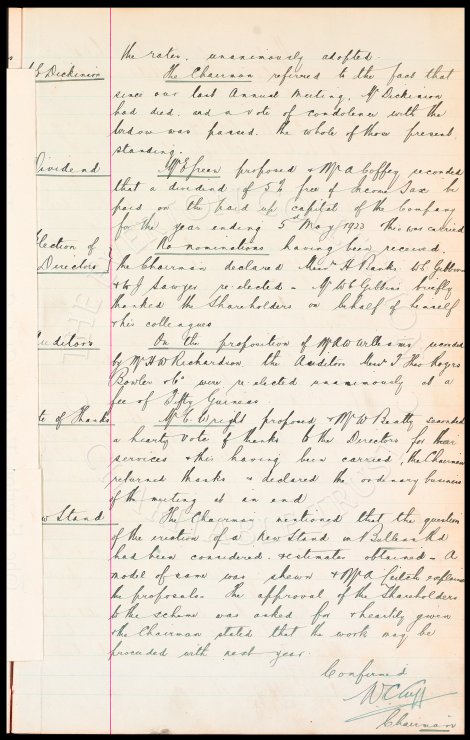 the rates, unanimously adopted.
Dickinson
The Chairman referred to the fact that
since our last Annual Meeting, Mr Dickinson
had died, and a vote of condolence with the
widow was passed, the whole of those present
standing.
Dividend
Mr E Green proposed & Mr A Coffey seconded
that a dividend of 5% free of Income Tax be
paid on the paid up capital of the Company
for the year ending 5th May 1923 this was carried
lection of
Directors
No nominations having been received,
the Chairman declared Messrs H Banks W C Gibbins
& W J Sawyer re-elected - Mr W C Gibbins briefly
thanked the Shareholders on behalf of himself
& his colleagues
uditors
On the proposition of Mr A W Williams, seconded
by Mr H W Richardson the Auditors Messrs J Theo Rogers
Bowler & Co were re-elected unanimously at a
fee of Fifty Guineas.
te of Thanks
Mr C Wright proposed & Mr W Beatty seconded
a hearty Vote of thanks to the Directors for their
services & this having been carried, the Chairman
returned thanks & declared the ordinary business
of the meeting at an end
w Stand
The Chairman mentioned that the question
of the erection of a New Stand in Bullens Rd
had been considered & estimates obtained - A
model of same was shewn & Mr A Leitch explained
the proposals. The approval of the Shareholders
to the scheme was asked for & heartily given
& the Chairman stated that the work may be
proceeded with next year.
Confirmed
W C Cuff
Chairman